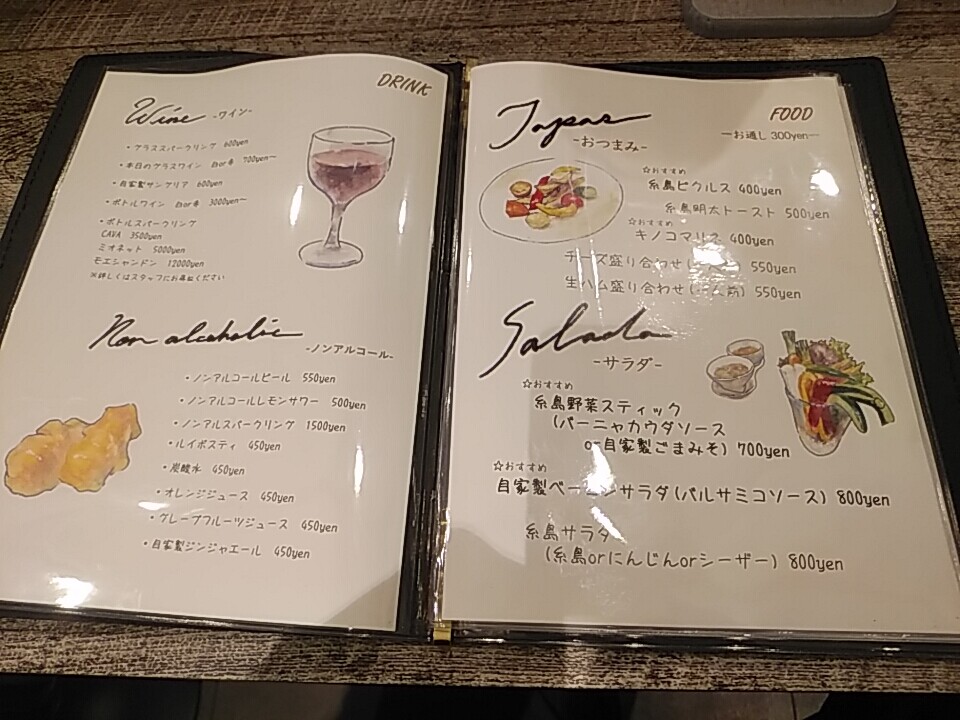 DRINK
Wine -ワイン-
・グラススパークリング 600yen
・本日のグラスワイン 白or赤 700yen〜
・自家製サングリア 600yen
・ボトルワイン 白or赤 3000yen〜
・ボトルスパークリング
CAVA 3500yen
ミオネット 5000yen
モエシャンドン 12000yen
※詳しくはスタッフにお尋ねください
Non alcoholic
-ノンアルコール-
・ノンアルコールビール 550yen
・ノンアルコールレモンサワー 500yen
・ノンアルスパークリング 1500yen
・ルイボスティ 450yen
・炭酸水 450yen
・オレンジジュース 450yen
・グレープフルーツジュース 450yen
・自家製ジンジャエール 450yen
FOOD
Tapas
-おつまみ-
—お通し 300yen—
☆おすすめ
糸島ピクルス 400yen
糸島明太トースト 500yen
☆おすすめ
キノコマリネ 400yen
チーズ盛り合わせ 550yen
生ハム盛り合わせ(一人前) 550yen
Salada
-サラダ-
☆おすすめ
糸島野菜スティック
(バーニャカウダソース
or自家製ごまみそ) 700yen
☆おすすめ
自家製ベーコンサラダ(バルサミコソース) 800yen
糸島サラダ
(糸島orにんじんorシーザー) 800yen